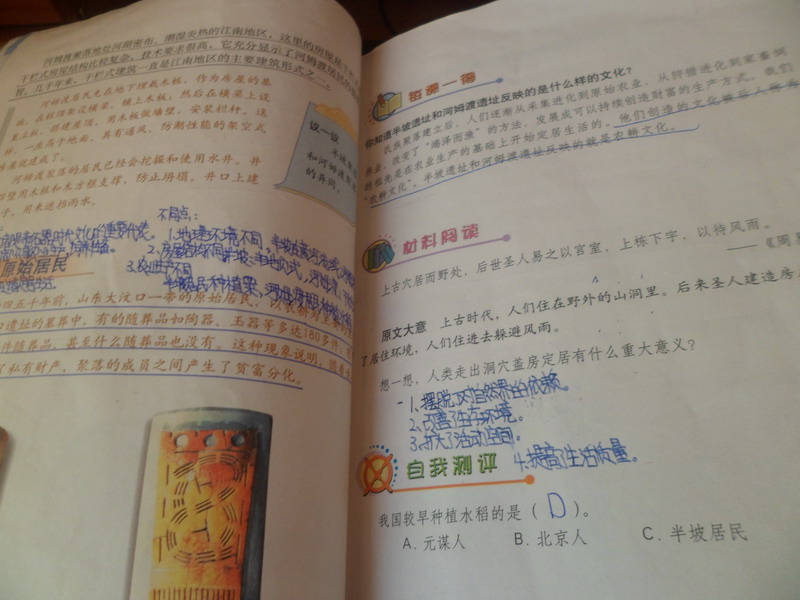 河姆渡聚落地处河湖密布、潮湿炎热的江南地区，这里的房屋是
干栏式房屋结构比较复杂，技术要求很高，它充分显示了河姆渡居民的
智。几千年来，干栏式建筑一直是江南地区的主要建筑形式之一。
河姆渡居民先在地下埋栽木桩，作为房屋的基
础，在桩顶架设横梁，铺上木板；然后在横梁上设
立柱，搭建屋顶，用木板做墙壁，安装栏杆。这
样，一座高于地面，具有通风、防潮性能的架空式
房屋就建成了。
河姆渡聚落的居民已经会挖掘和使用水井。井
四壁用木桩和木方框支撑，防止坍塌。井口上建
子，用来遮挡雨水。
议一议
和河姆渡聚落
的异同。
不同点：
1.地理环境不同
2.房屋结构不同
3.农业生产不同
原始居民
四五千年前，山东大汶口一带的原始居民，以农耕为主
口遗址的墓葬中，有的随葬品如陶器、玉器等多达180多件；
件随葬品，甚至什么随葬品也没有。这种现象说明，随着
了私有财产，聚落的成员之间产生了贫富分化。
每课一得
你知道半坡遗址和河姆渡遗址反映的是什么样的文化？
农族聚落建立后，人们逐渐从采集进化到原始农业，从狩猎进化到家畜饲
养业，改变了“竭泽而渔”的方法，发展成可以持续创造财富的生产方式。我们
的祖先是在农业生产的基础上开始定居生活的。他们创造的文化被后人称为
“农耕文化”。半坡遗址和河姆渡遗址反映的就是农耕文化。
材料阅读
上古穴居而野处，后世圣人易之以宫室，上栋下宇，以待风雨。
——《周易
原文大意 上古时代，人们住在野外的山洞里。后来圣人建造房
了居住环境，人们住进去躲避风雨。
想一想，人类走出洞穴盖房定居有什么重大意义？
1、摆脱对自然界的依赖。
2、改善了生存环境。
3、扩大了活动空间。
4.提高了生活质量。
自我测评
我国较早种植水稻的是（ D ）。
A. 元谋人 B. 北京人 C. 半坡居民